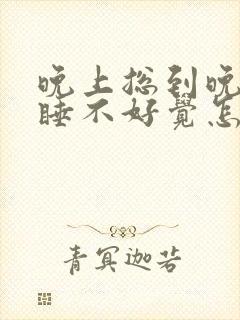 晚上总到晚
睡不好覺怎
青冥迦若